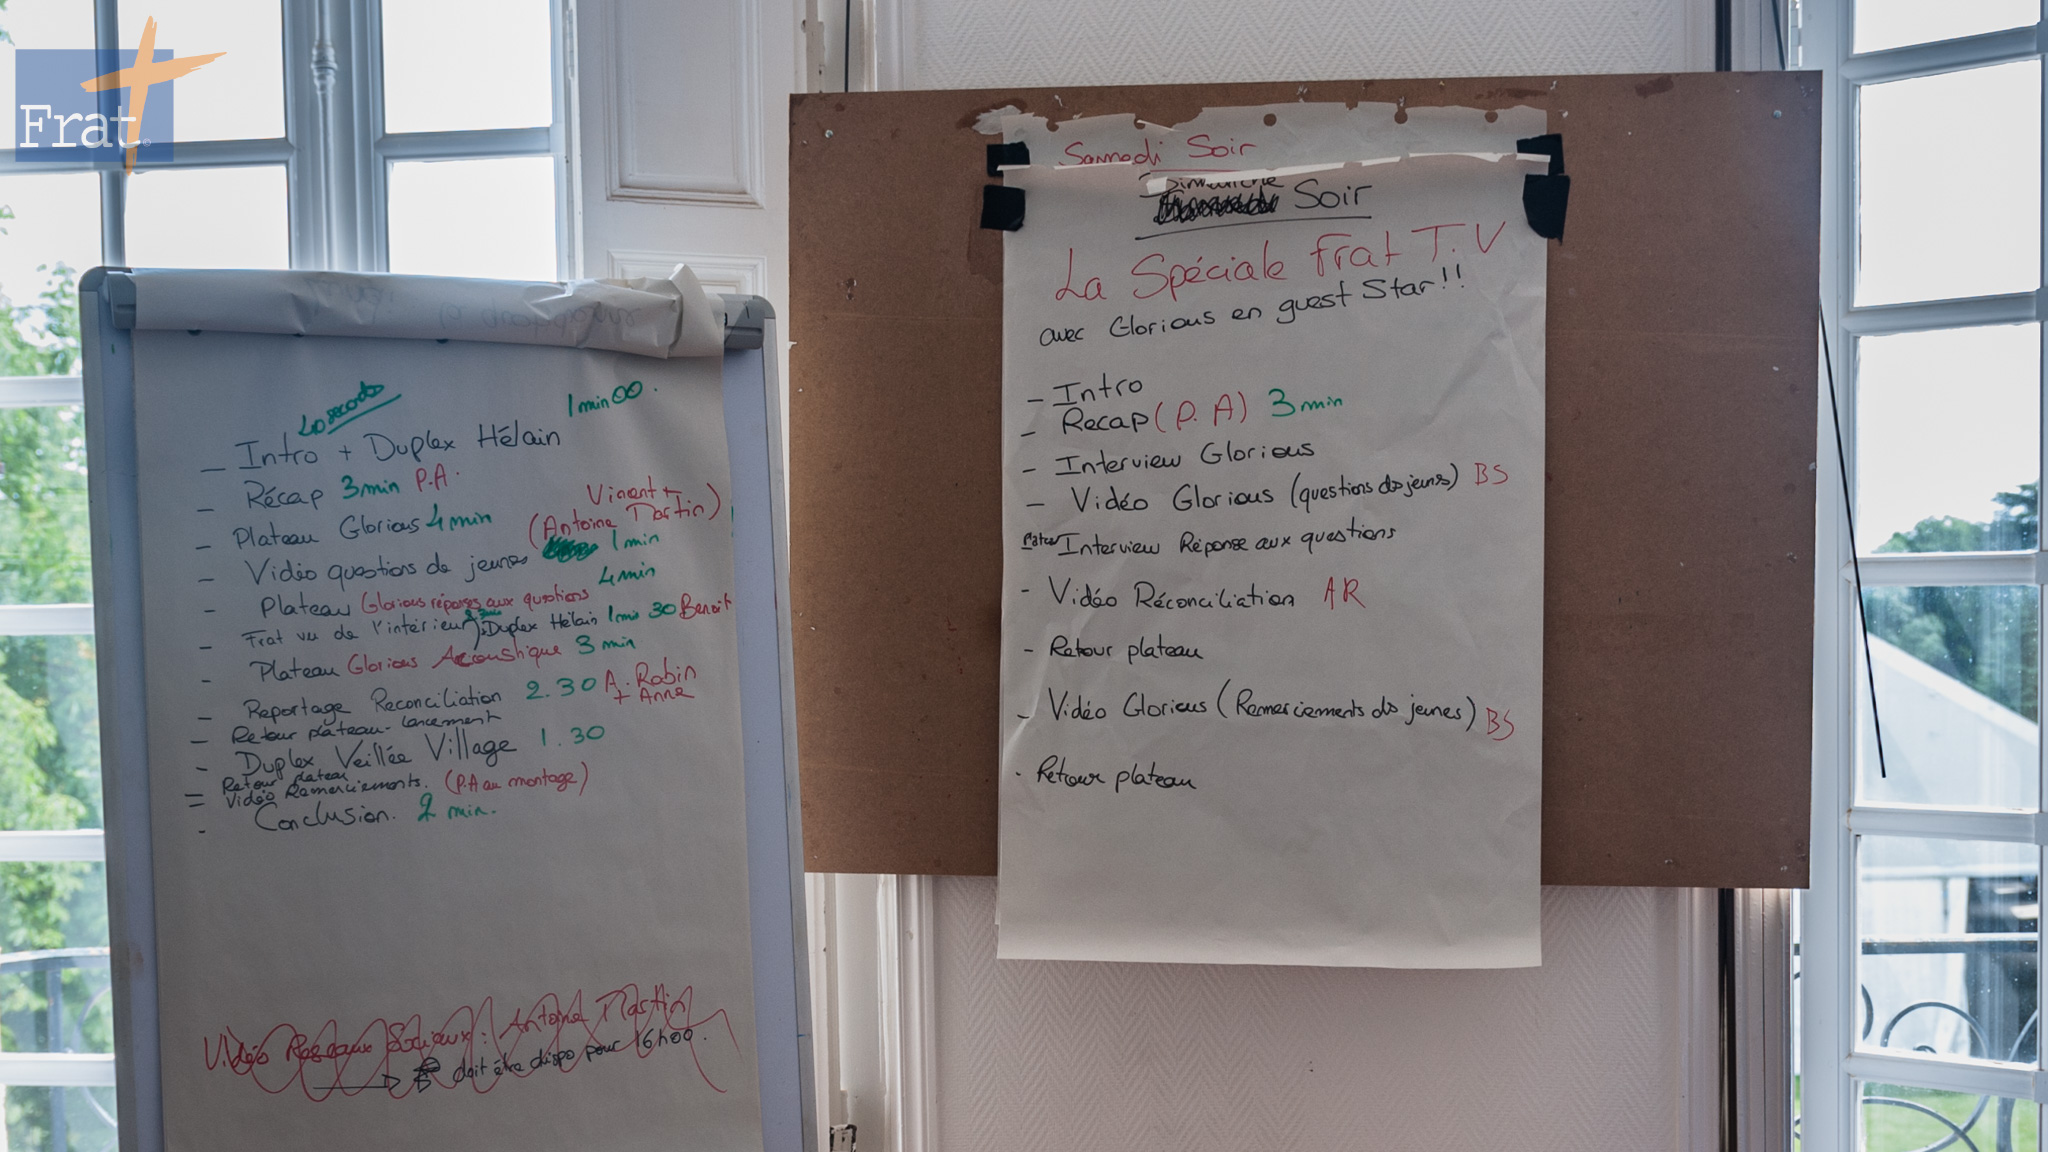 Frat
40 secondes
Intro + Duplex Hélain 1min00.
Récap 3min P.A.
Vincent +
Plateau Glorious 4min (Antoine Martin)
Vidéo questions de jeunes 1min
Plateau Glorious réponses aux questions 4min
Frat vu de l'intérieur Duplex Hélain 1min 30 Benoit
Plateau Glorious Accoustique 3min
Reportage Reconciliation 2.30 A. Robin
+ Anne
Retour plateau - lancement
Duplex Veillée Village 1.30
Retour plateau
Vidéo Remerciements. (P.A au montage)
Conclusion. 2 min.
Vidéo Réseaux Sociaux : Antoine Martin
doit être dispo pour 16h00.
Samedi Soir
Dimanche
Soir
La Spéciale Frat T.V
avec Glorious en guest Star!!
- Intro
- Recap (P.A) 3min
- Interview Glorious
- Vidéo Glorious (questions ds jeunes) BS
Interview Réponse aux questions
- Vidéo Réconciliation AR
- Retour plateau
- Vidéo Glorious (Remerciements ds jeunes) BS
- Retour plateau